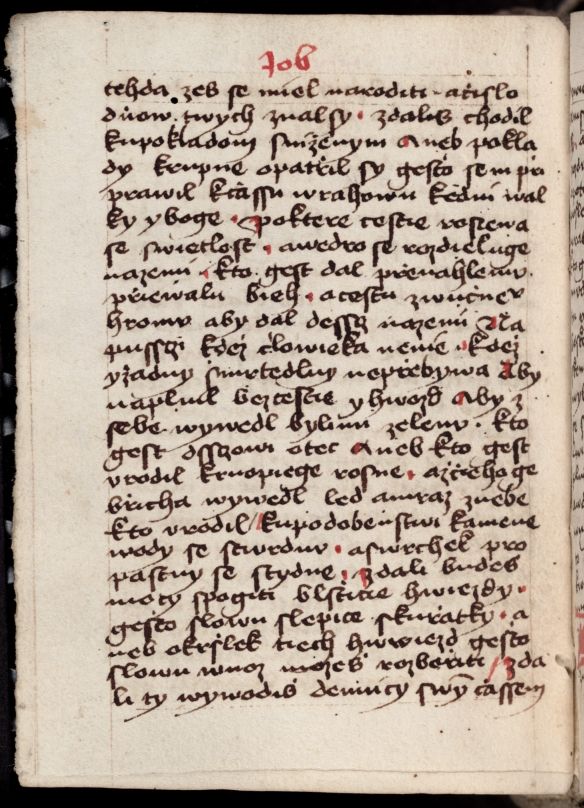 Job
tehda zes se miel naroditi · a cislo
dnow twych znal sy · zdalis chodil
ku pokladom snizenym Aneb pokla
dy krupne opatril sy gesto sem pri
prawil k czassu wrahowu k edni wal
ky y boge · Po ktere cestie rosiewa
se swietlost · a wedro se rozdieluge
na zemi · kto gest dal prenahlemu
priewalu bieh · a cestu zwucne°
hromu aby dal dessg na zemi Na
pussti kdez clowieka nenie · kdez
y zadny smrtedlny neprebywa Aby
naplnil bezcestie y hwozd Aby z
sebe wywedl bylinu zelenu · kto
gest dsscowi otec Aneb kto gest
vrodil kruopiege rosne · a z cziehoge
bricha wywedl led a mraz z nebe
kto vrodil / ku podobenstwi kamene
wody se stwrdnu · a swrchek pro
pastny se stydne · zdali budes
mocy spogiti blsticie hwiezdy ·
gesto slowu slepice s kuratky · a
neb okrslek tiech hwiezd gesto
slowu woz mozes rozboriti / zda
li ty wywodis dennicy swym cassem